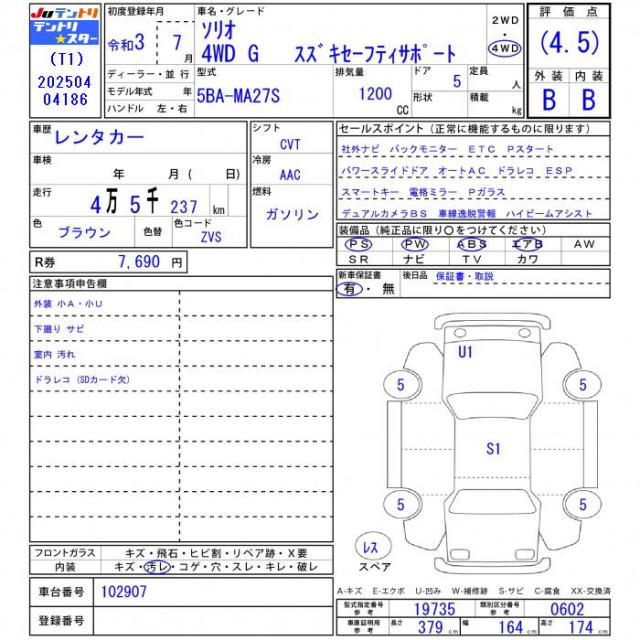 Juテントリ
テントリ
★スター
(T1)
202504
04186
初度登録年月
令和3 年 7 月
車名・グレード
ソリオ
4WD G スズキセーフティサポート
2WD
・
4WD
評価点
(4.5)
外装 内装
B B
ディーラー・並行
モデル年式 年
ハンドル 左・右
型式
5BA-MA27S
排気量
1200
CC
ドア 5
形状
定員 人
積載 kg
車歴 レンタカー
車検
年 月( 日)
走行
4万 5千 237 km
色 ブラウン
色替
色コード
ZVS
シフト
CVT
冷房
AAC
燃料
ガソリン
R券 7,690 円
セールスポイント(正常に機能するものに限ります)
社外ナビ バックモニター ETC Pスタート
パワースライドドア オートAC ドラレコ ESP
スマートキー 電格ミラー Pガラス
デュアルカメラBS 車線逸脱警報 ハイビームアシスト
装備品(純正品に限り〇をつけてください)
PS PW ABS エアB AW
SR ナビ TV カワ
新車保証書
有・無
後日品 保証書・取説
注意事項申告欄
外装 小A・小U
下廻り サビ
室内 汚れ
ドラレコ(SDカード欠)
U1
5
5
S1
5
5
レス
スペア
フロントガラス キズ・飛石・ヒビ割・リペア跡・X要
内装 キズ・汚レ・コゲ・穴・スレ・キレ・破レ
車台番号 102907
登録番号
A-キズ E-エクボ U-凹み W-補修跡 S-サビ C-腐食 XX-交換済
型式指定番号
参考
19735
類別区分番号
参考
0602
車庫証明用
参考
長さ 379 cm 幅 164 cm 高さ 174 cm